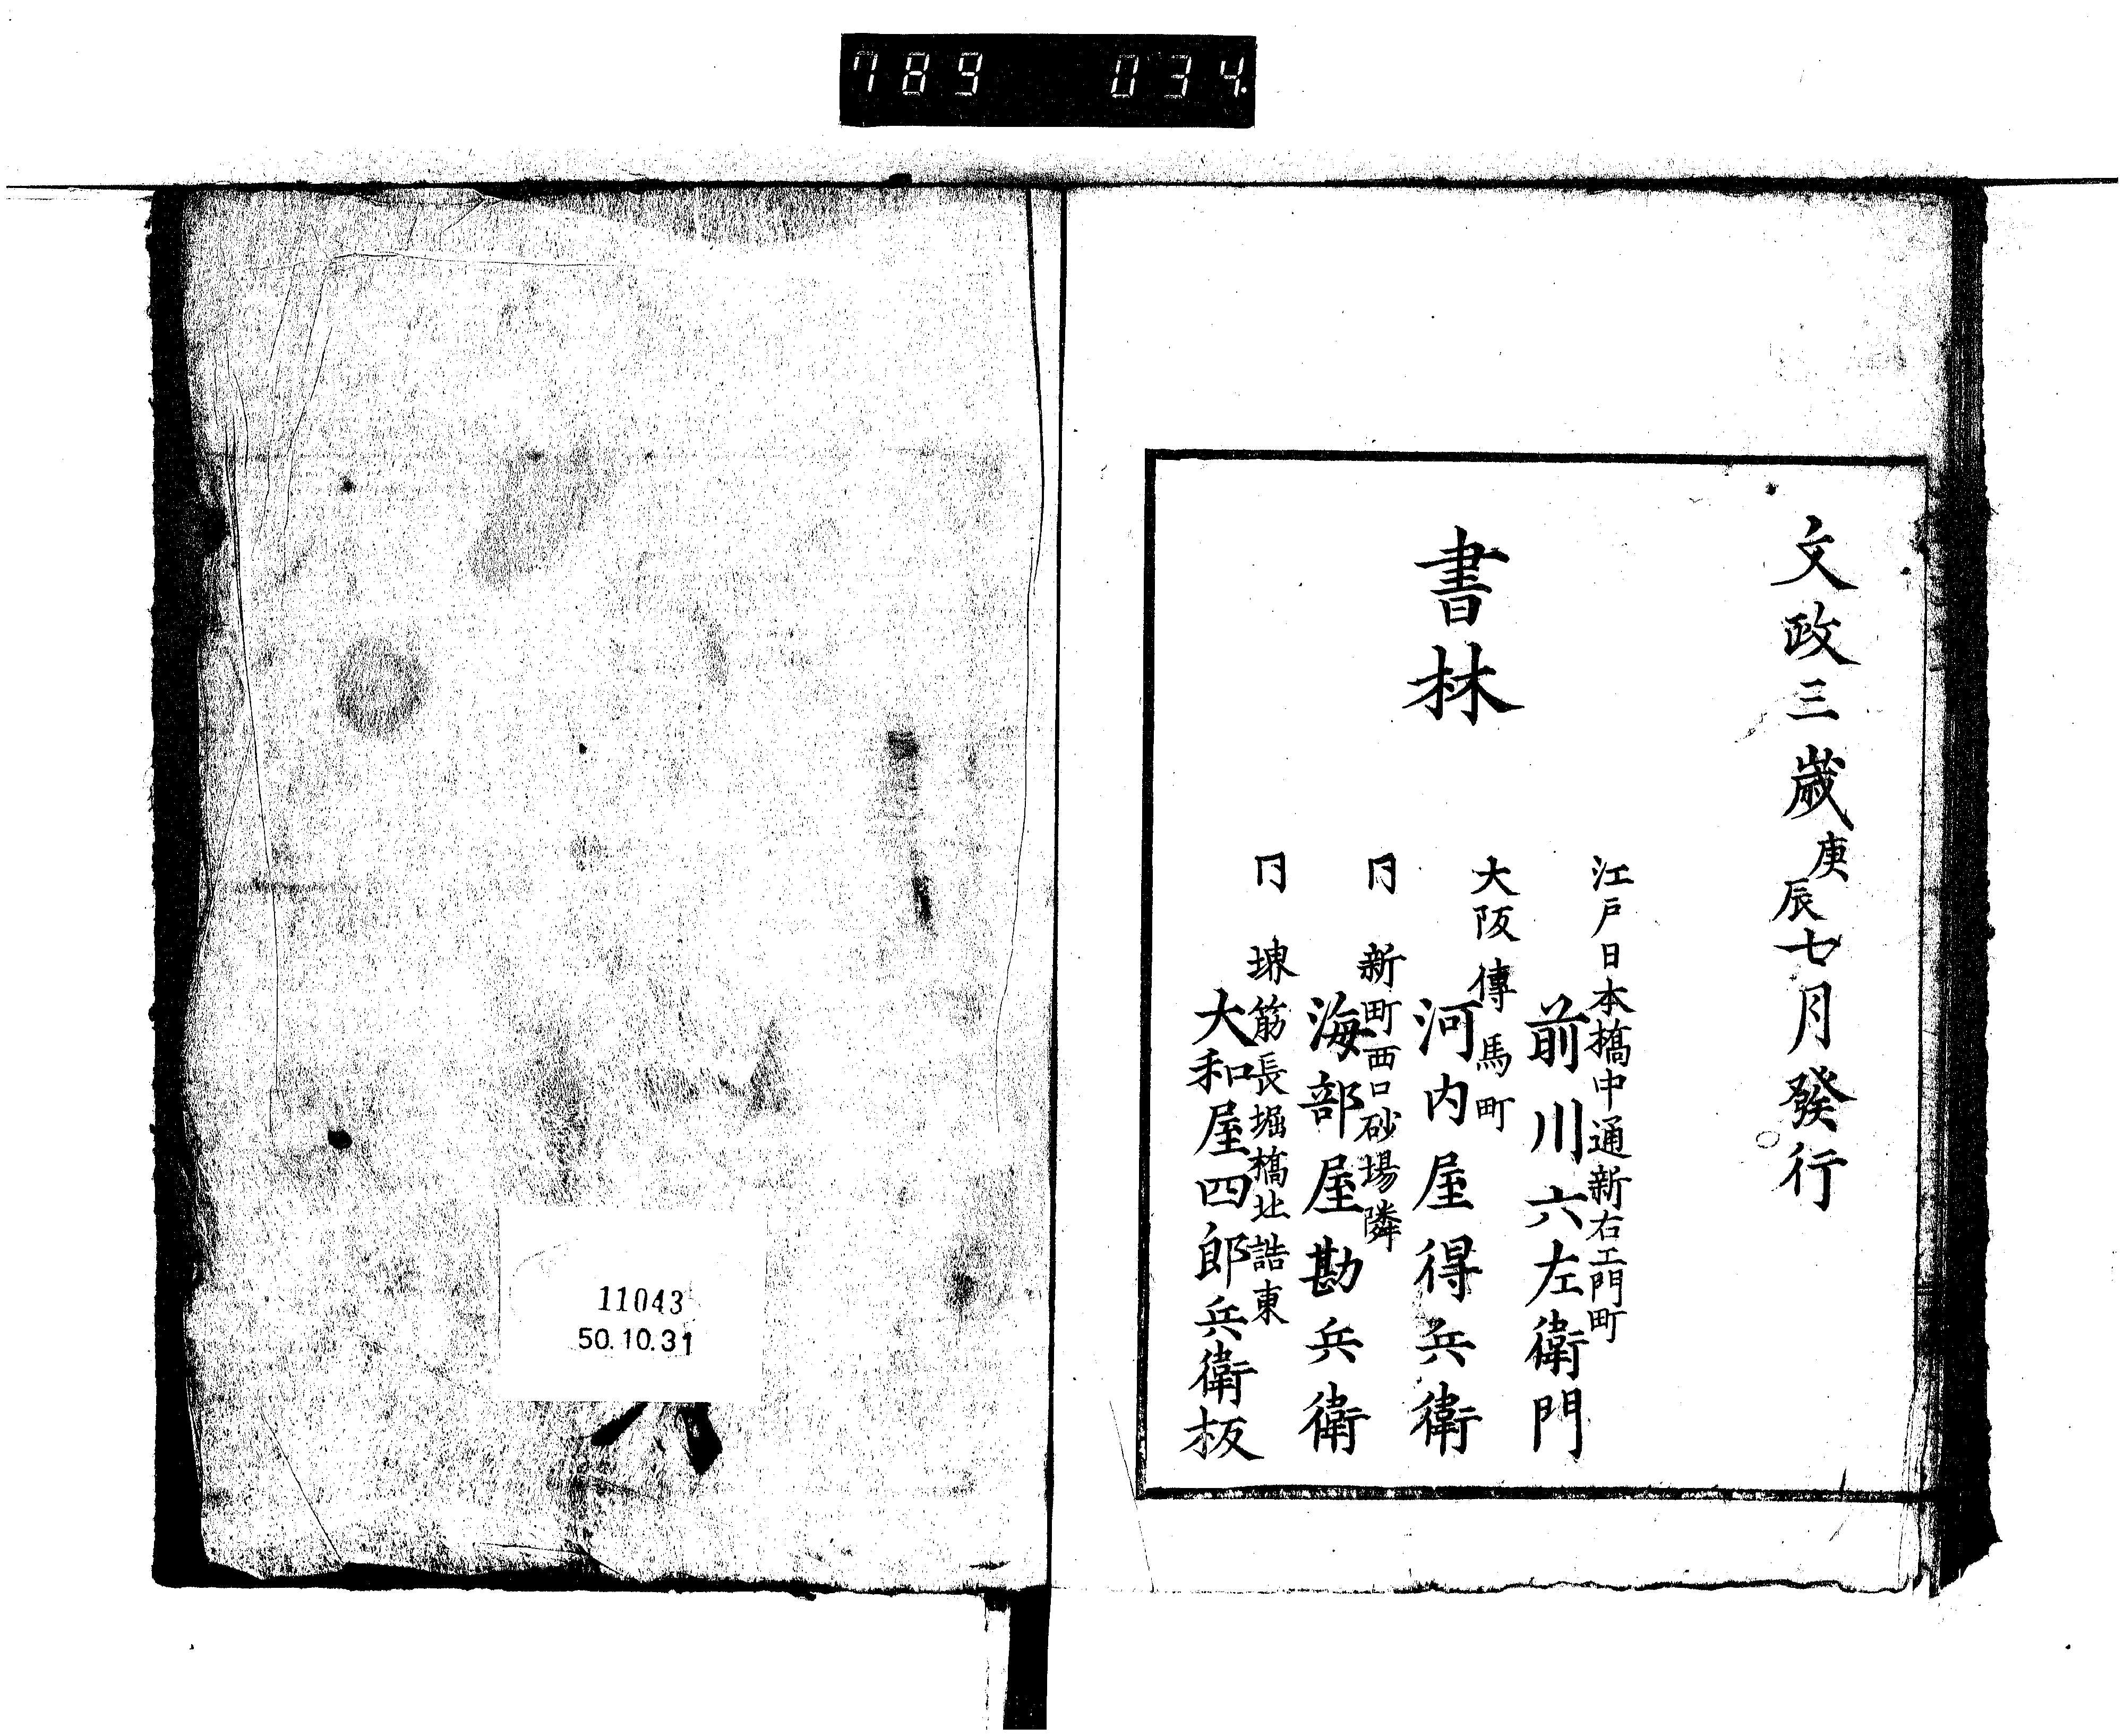 789 034
文政三歳庚辰七月發行
書林
江戸日本橋中通新右エ門町
前川六左衛門
大阪傳馬町
河内屋得兵衛
冂 新町西口砂場隣
海部屋勘兵衛
冂 堺筋長堀橋北詰東
大和屋四郎兵衛板
11043
50.10.31